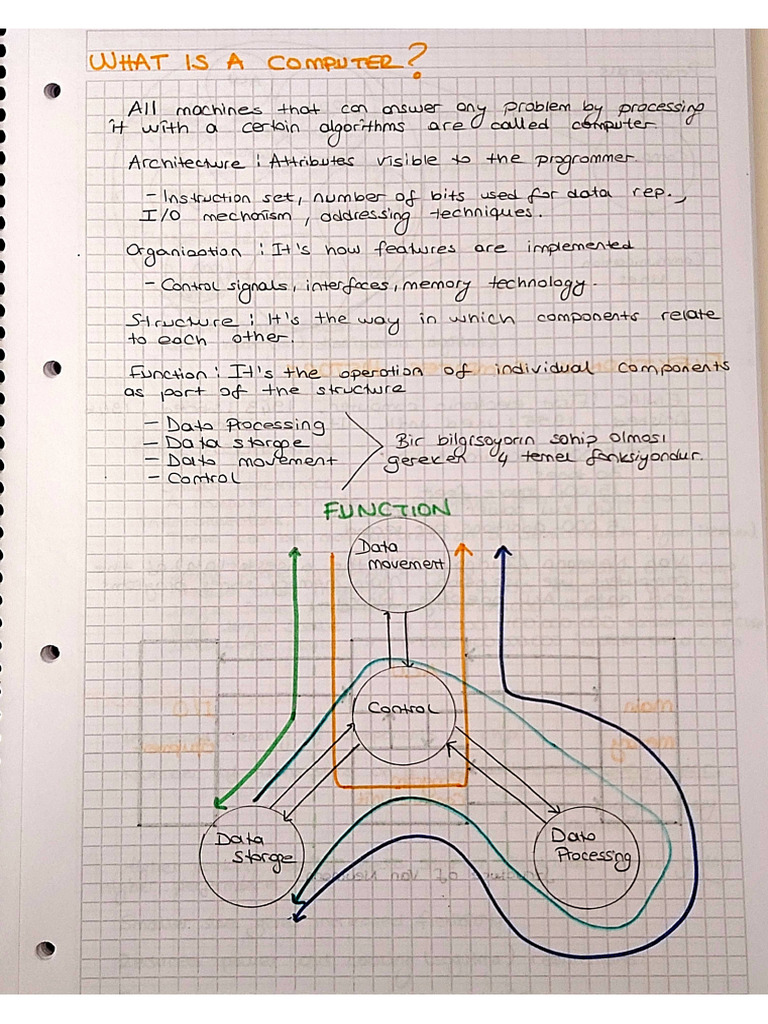 WHAT IS A COMPUTER?
All machines that can answer any problem by processing
it with a certain algorithms are called computer
Architecture : Attributes visible to the programmer.
- Instruction set, number of bits used for data rep.,
I/O mechanism, addressing techniques.
Organization : It's how features are implemented
- Control signals, interfaces, memory technology.
Structure : It's the way in which components relate
to each other.
Function : It's the operation of individual components
as part of the structure
- Data Processing
- Data storge
- Data movement
- Control
Bir bilgisayarın sahip olması
gereken 4 temel fonksiyondur.
FUNCTION
Data
movement
Control
Data
Storge
Data
Processing